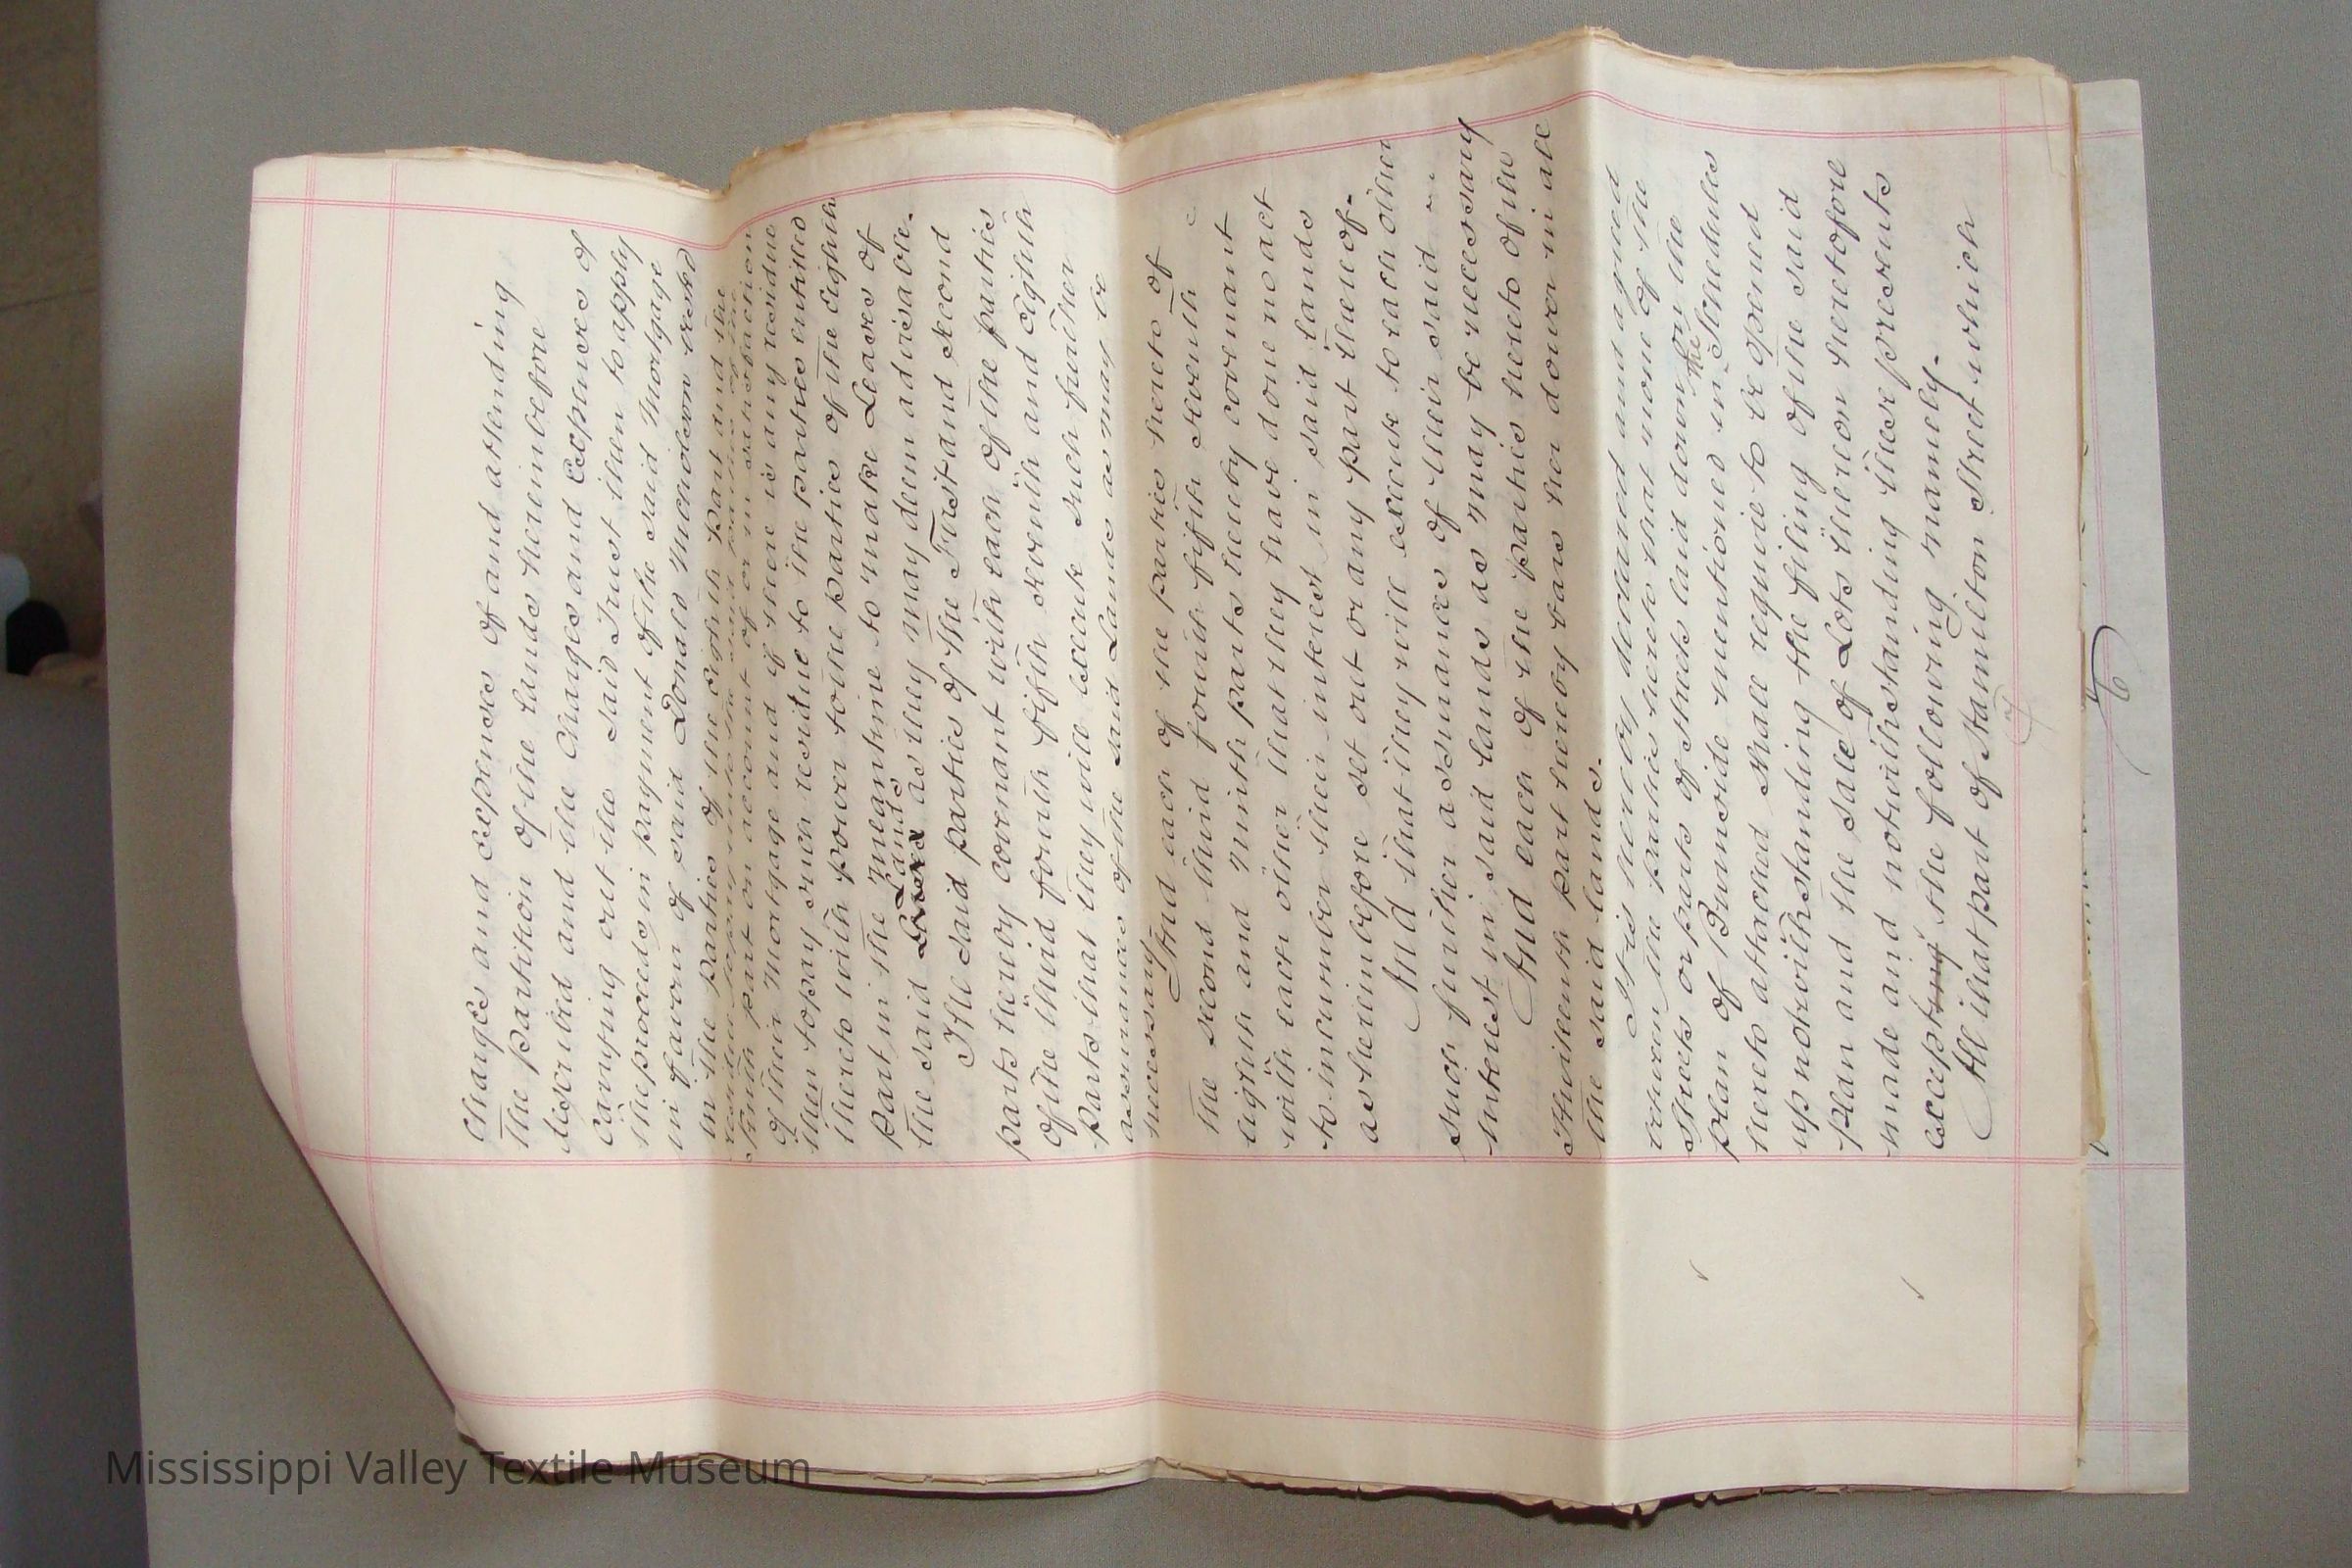 charges and expenses of and attending
the partition of the lands hereinbefore
described and the Charges and Expenses of
Carrying out the said Trust then to apply
the proceeds in payment of the said Mortgage
in favour of said Donald McNolson vested
in the parties of the eighth part and the
residue to pay into the said parties of the
tenth part on account of or in satisfaction
of their Mortgage and if there is any residue
then to pay such residue to the parties entitled
thereto with power to the parties of the Eighth
part in the meantime to make Leases of
Lands
the said as they may deem advisable.
The said parties of the First and Second
parts hereby covenant with each of the parties
of the third fourth fifth seventh and Eighth
parts that they will execute such further
assurances of the said Lands as may be
necessary
And each of the parties hereto of
the second third fourth fifth seventh
eighth and Ninth parts hereby covenant
with each other that they have done no act
to incumber their interest in said lands
as hereinbefore set out or any part thereof.
And that they will execute to each other
such further assurances of their said
interest in said lands as may be necessary
And each of the parties hereto of the
Thirteenth part hereby bars her dower in all
the said lands.
It is hereby declared and agreed
between the parties hereto that none of the
Streets or parts of streets laid down on the
the
plan of Burnside mentioned in Schedules
hereto attached shall require to be opened
up notwithstanding the filing of the said
plan and the sale of Lots thereon heretofore
made and notwithstanding these presents
excepting the following namely.
All that part of Hamilton Street which
7
Mississippi Valley Textile Museum